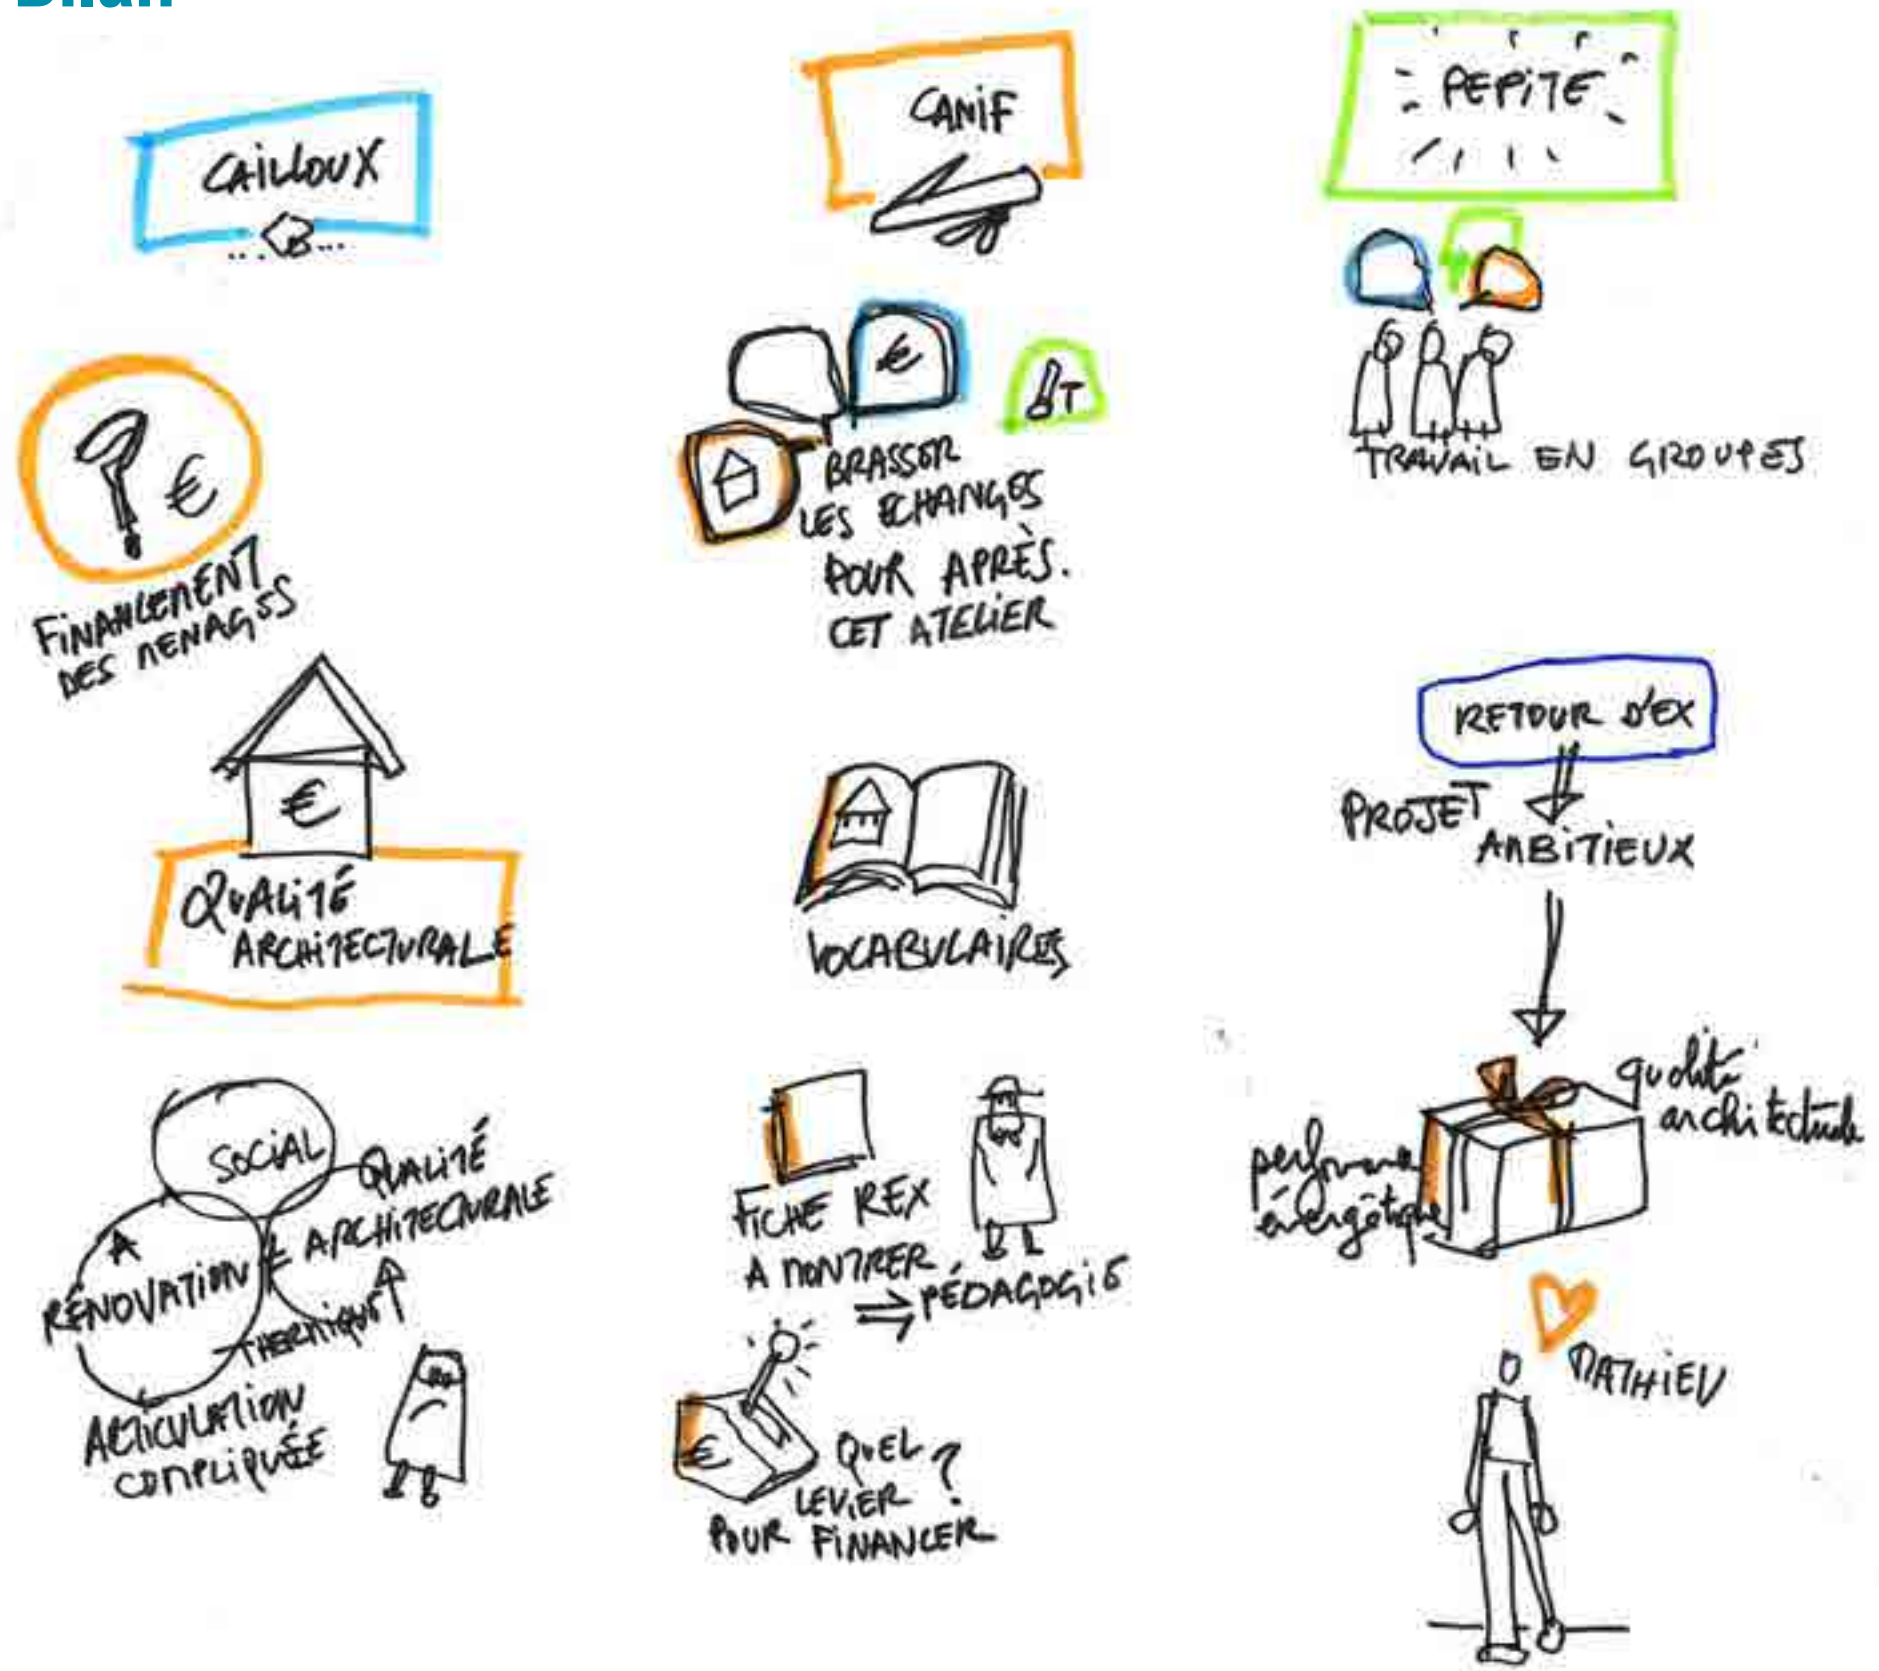 Bilan
CAILLOUX
€
FINANCEMENT
DES MENAGES
€
QUALITÉ
ARCHITECTURALE
SOCIAL
QUALITÉ
ARCHITECTURALE
A
RÉNOVATION
THERMIQUE
ARTICULATION
COMPLIQUÉE
CANIF
€
T
BRASSER
LES ECHANGES
POUR APRÈS.
CET ATELIER
VOCABULAIRES
FICHE REX
A MONTRER
⇒ PÉDAGOGIE
€
QUEL
LEVIER ?
POUR FINANCER
PEPITE
TRAVAIL EN GROUPES
RETOUR D'EX
PROJET
AMBITIEUX
qualité
architecturale
performance
énergétique
MATHIEU